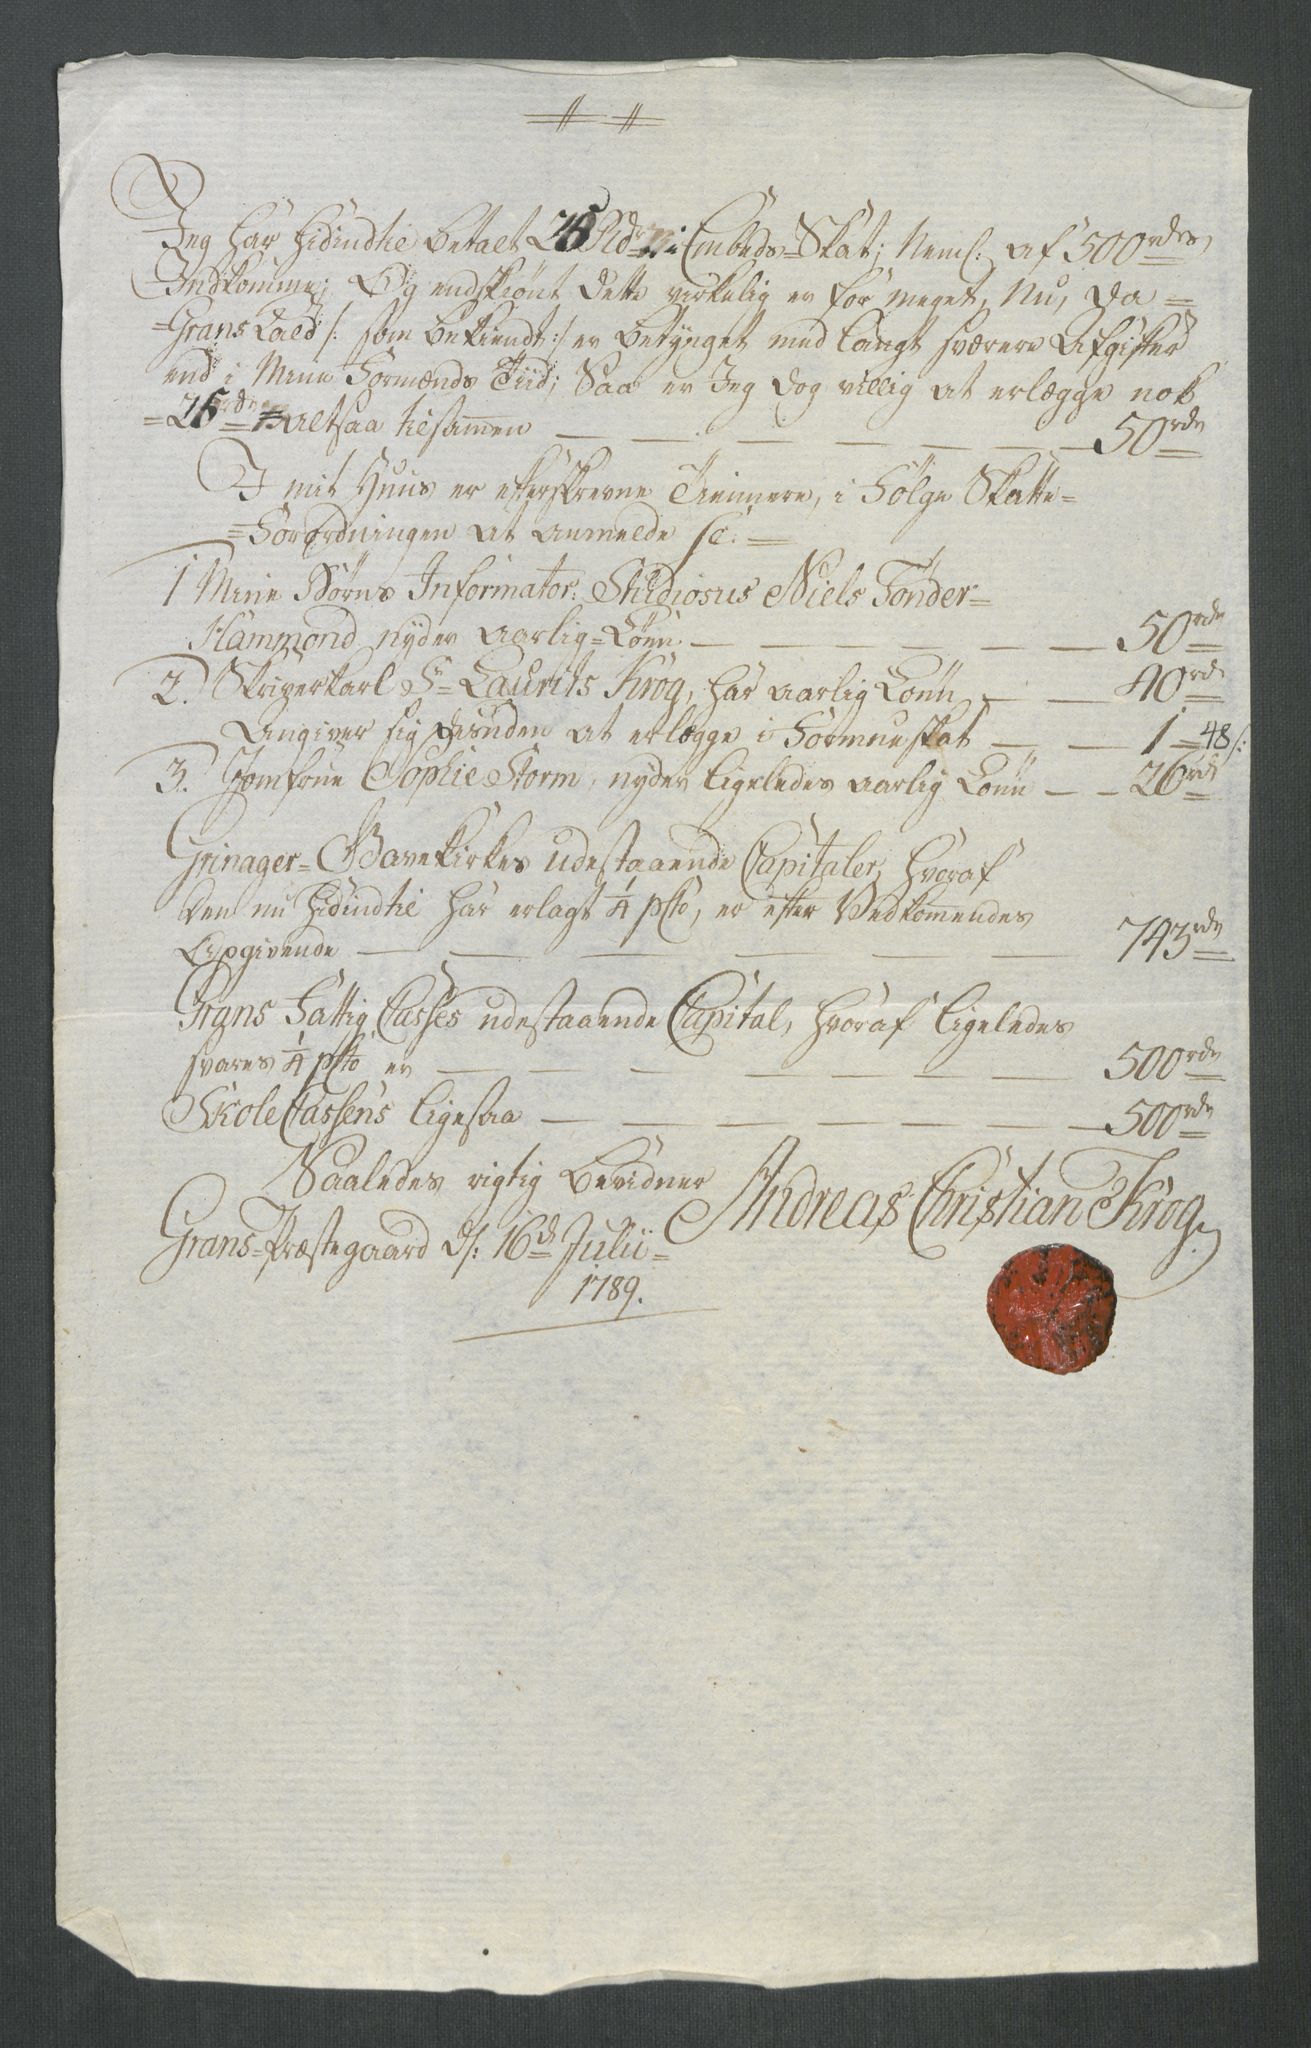 Jeg har hidindtil betalt 25 Rdr i Embeds-Skat; Neml: af 500 rdrs
Indkomme; Og endskiønt dette virkelig er for meget, Nu, da =
=Grans Kald /: som bekiendt :/ er betÿnget med langt sværere Afgifter
end i Mine Formænds Tiid; Saa er Jeg dog villig at erlægge nok
=25 rdr = altsaa tilsammen — — — — — — 50 rdr
I mit Huus er efterskrevne Tiennere, i Følge Skatte=
=Forordningen at anmelde sc: =
1 Mine Børns Informator: Studiosus Niels Tønder=
Hammond nyder aarlig=Lønn. — — — — — 50 rdr
2. Skriverkarl Sr Laurits Krog, har aarlig Lønn — — 40 rdr
Angiver sig desuden at erlægge i Formueskat — — 1 = 48 s:
3. Jomfrue Sophie Storm, nyder ligeledes aarlig Lønn — — 26 rdr
Grinager= Gavekirkes udestaaende Capitaler, hvoraf
den nu hidindtil har erlagt 1/4 pCto, er efter Vedkommendes
Opgivende — — — — — — 743 rdr
Grans Fattig Casses udestaaende Capital, hvoraf ligeledes
svares 1/4 pCto er — — — — — — 500 rdr
Skole Cassens ligesaa — — — — — — 500 rdr
Saaledes rigtig bevidner
Andreas Christian Krog.
Grans=Præstegaard d: 16de Julii=
1789.